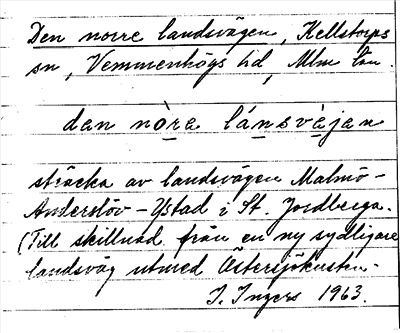 Den norre landsvägen, Kellstorps
sn, Vemmenhögs hd, Mlm län.
dan nòra lánsvàjan
sträcka av landsvägen Malmö-
Anderslöv-Ystad i St. Jordberga.
(Till skillnad från en ny sydligare
landsväg utmed Östersjökusten.
I. Ingers 1963.